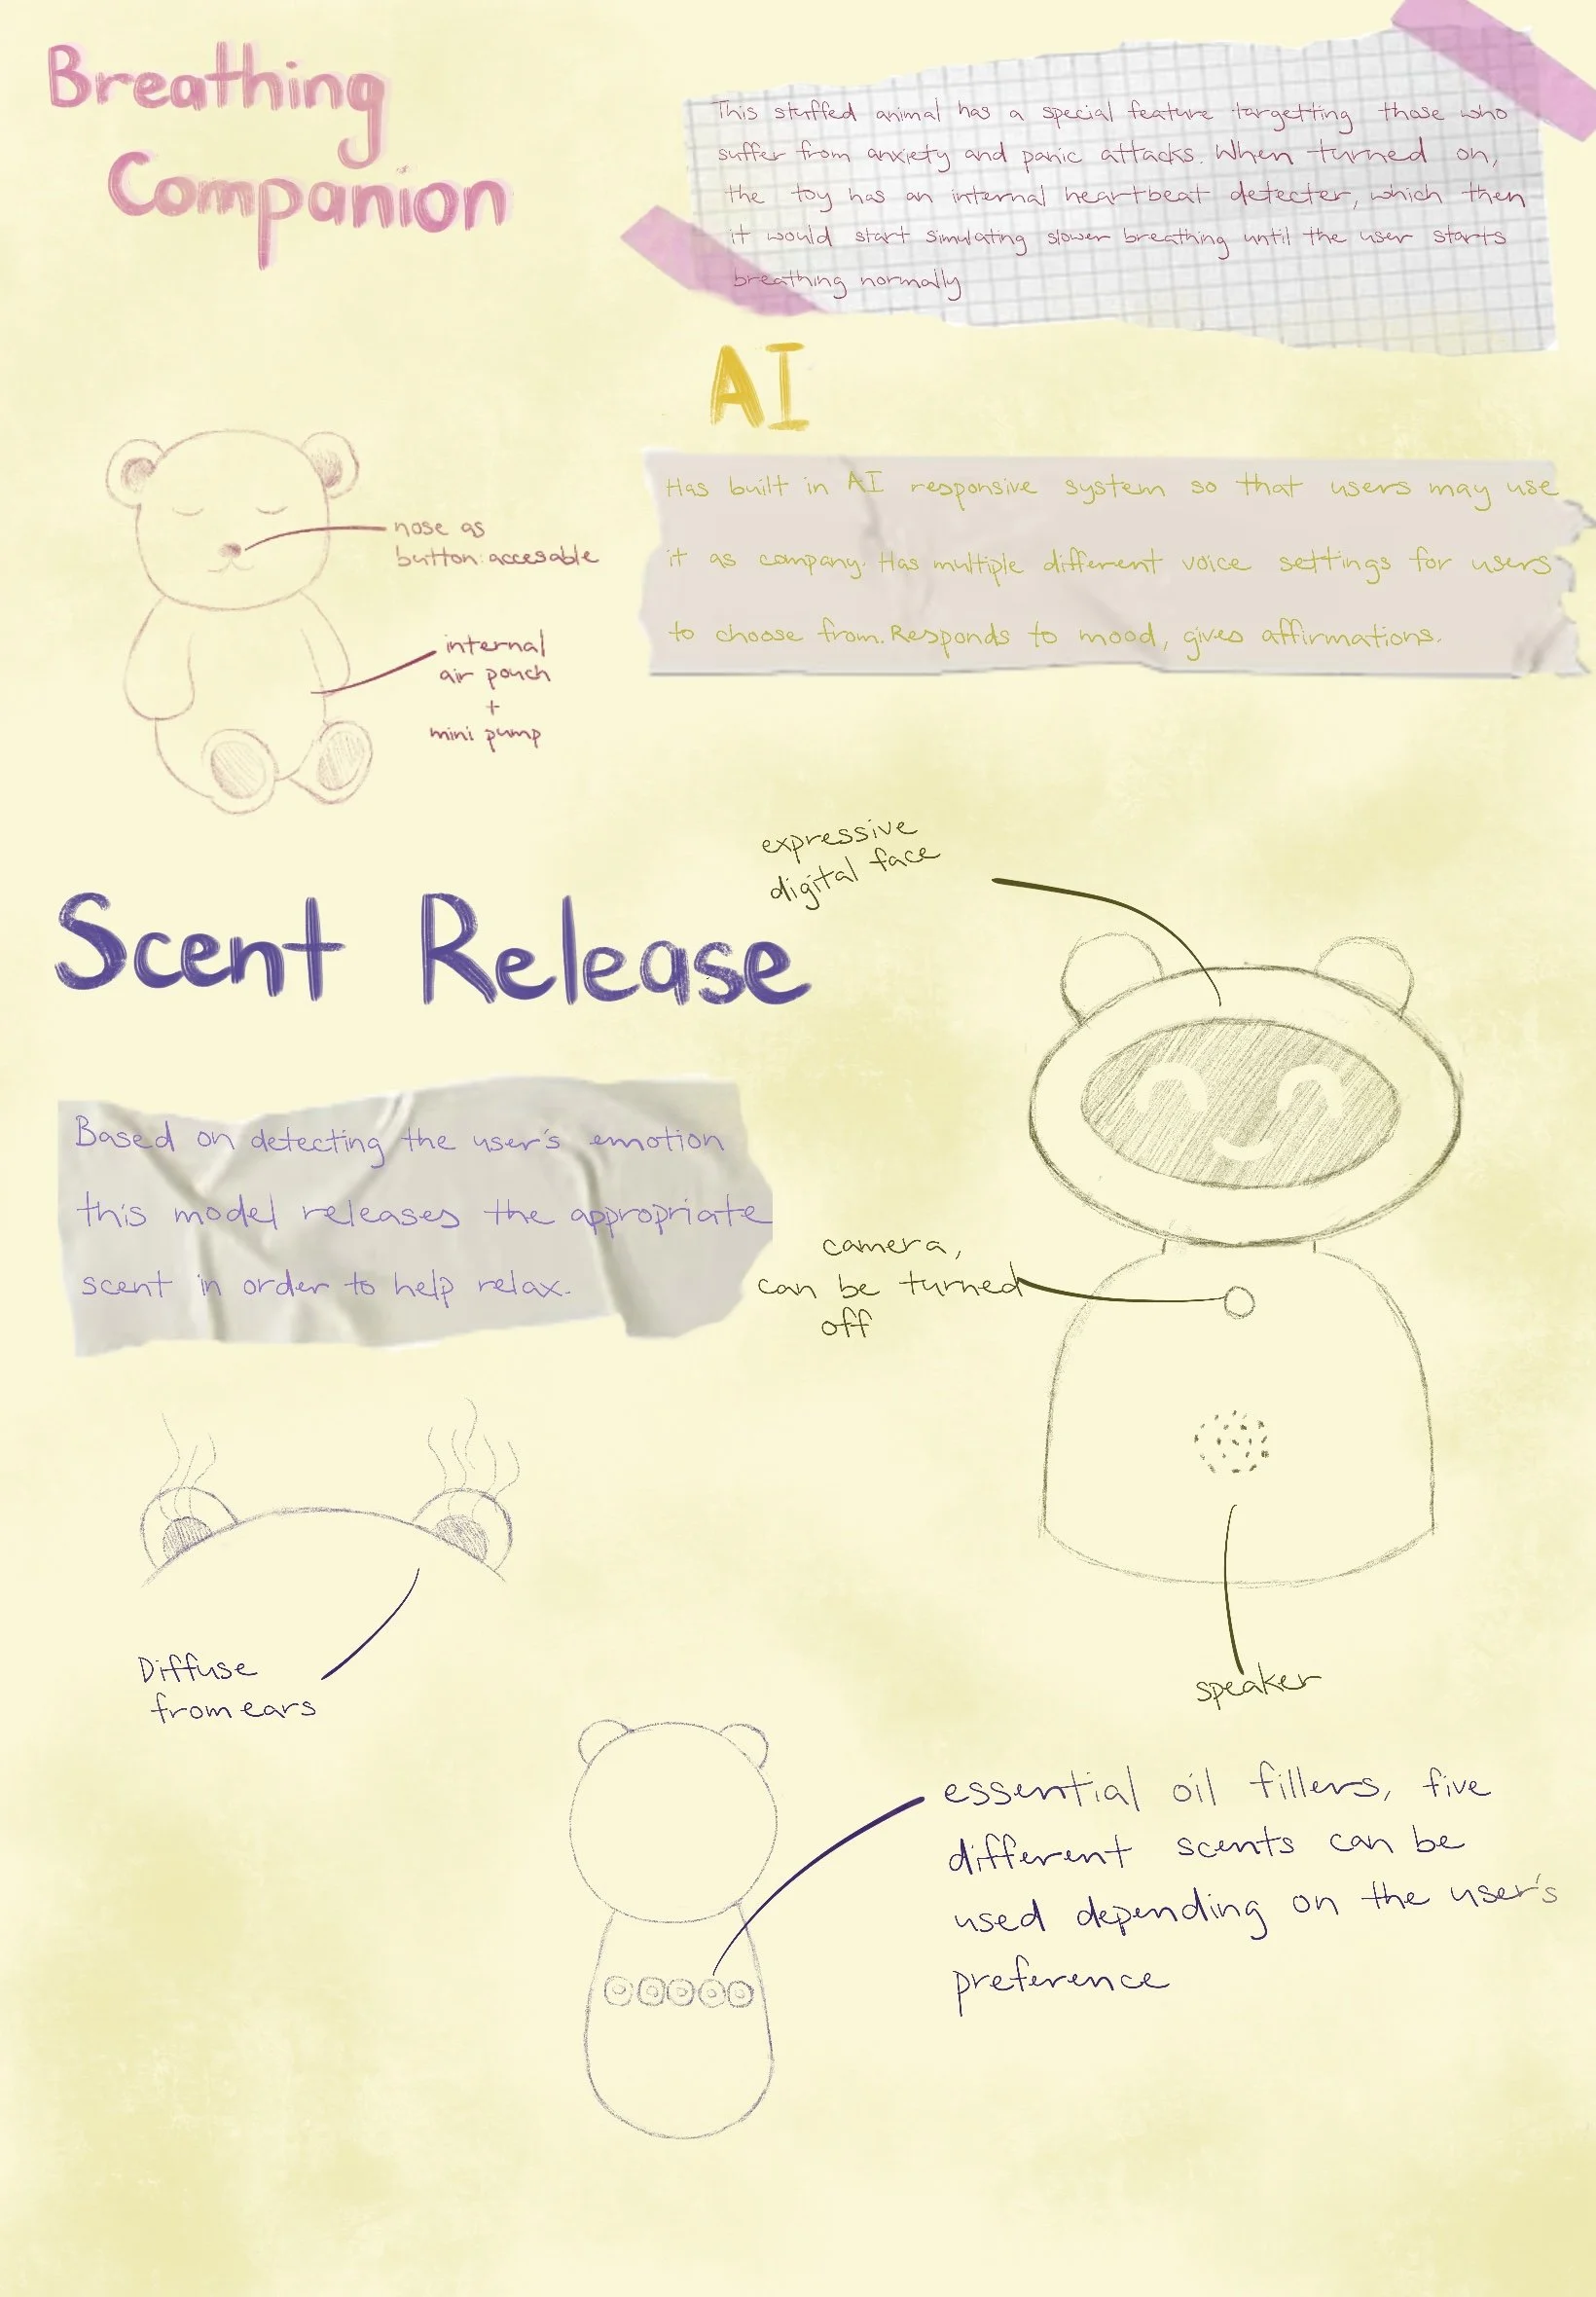 Breathing
Companion
This stuffed animal has a special feature targetting those who
suffer from anxiety and panic attacks. When turned on,
the toy has an internal heartbeat detecter, which then
it would start simulating slower breathing until the user starts
breathing normally
AI
Has built in AI responsive system so that users may use
it as company. Has multiple different voice settings for users
to choose from. Responds to mood, gives affirmations.
nose as
button: accesable
internal
air pouch
+
mini pump
expressive
digital face
Scent Release
Based on detecting the user's emotion
this model releases the appropriate
scent in order to help relax.
camera,
can be turned
off
Diffuse
from ears
speaker
essential oil fillers, five
different scents can be
used depending on the user's
preference